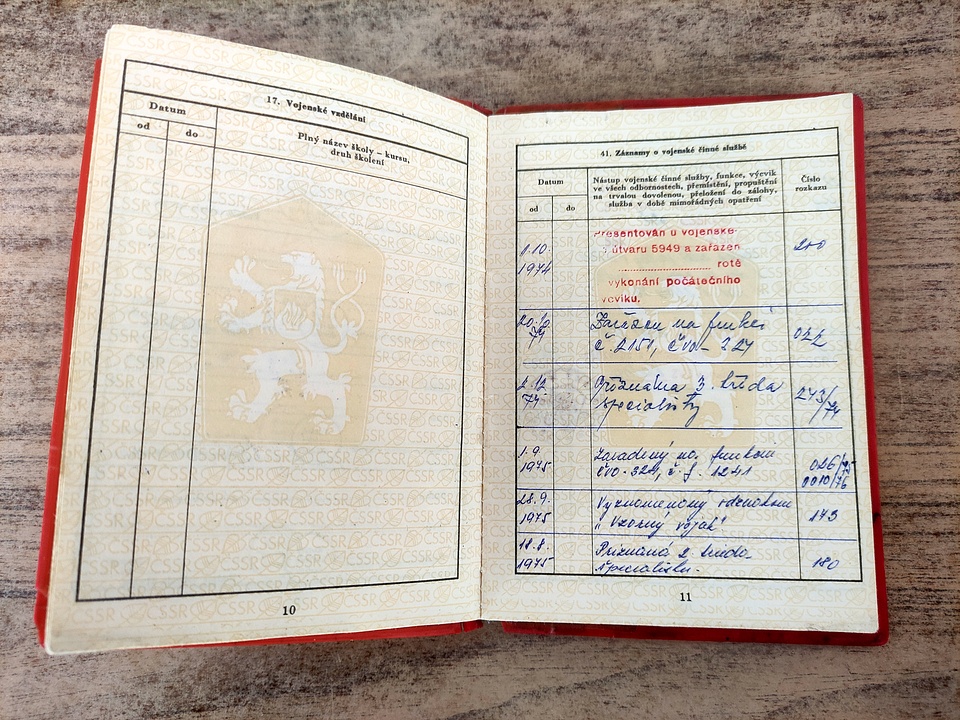 17. Vojenské vzdělání
Datum
od do
Plný název školy – kursu,
druh školení
10
41. Záznamy o vojenské činné službě
Datum
od do
Nástup vojenské činné služby, funkce, výcvik
ve všech odbornostech, přemístění, propuštění
na trvalou dovolenou, přeložení do zálohy,
služba v době mimořádných opatření
Číslo
rozkazu
1.10.
1974
Presentován u vojenské
útvaru 5949 a zařazen
rotě
vykonání počátečního
výcviku.
210
74
Zařazen na funkci
č. 2151, čvo - 327
022
2.12
74
Přiznána 3. třída
specialisty
243/74
1.9.
1975
Zaradený na funkciu
čvo - 324, č. f. 1241
28.9.
1975
Vyznamenaný odznakom
"Vzorný voják"
143
18.8.
1975
Priznaná 2 trieda
špecialistu.
180
11
ČSSR